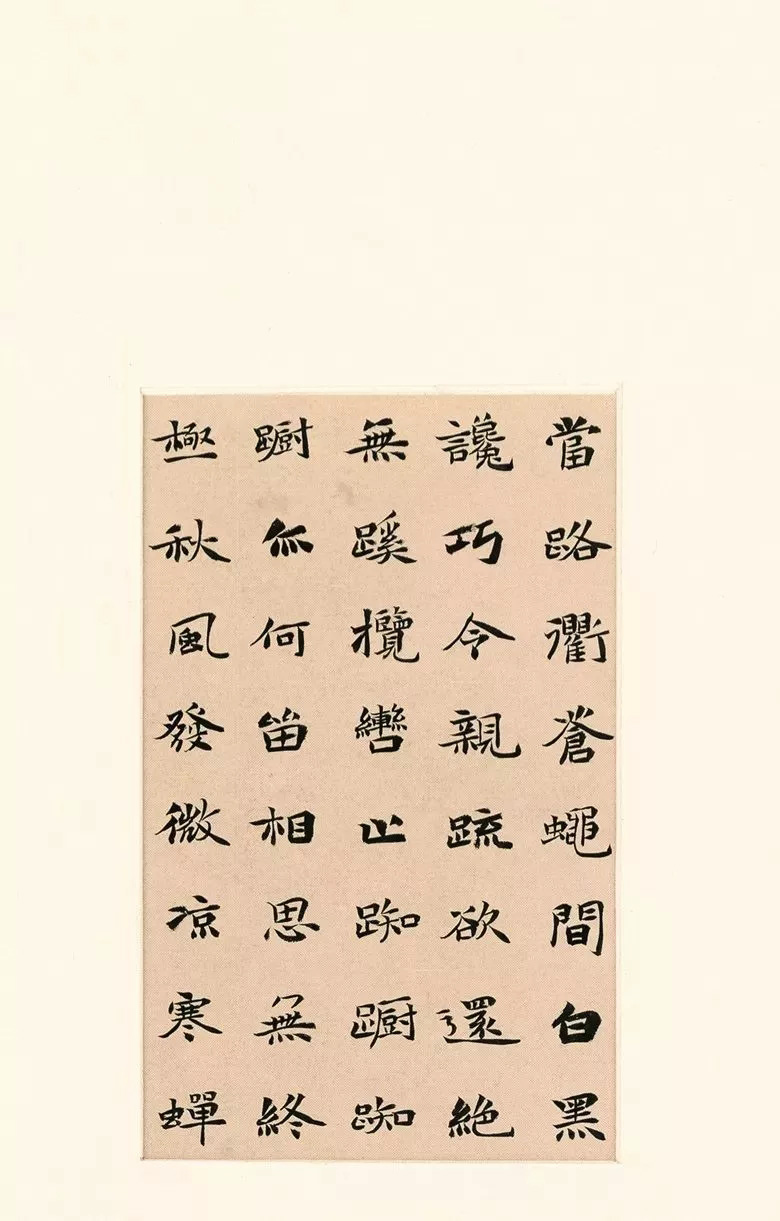 當路衢蒼蠅間白黑
讒巧令親疏欲還絶
無蹊攬轡止踟躕踟
躕亦何留相思無終
極秋風發微凉寒蟬